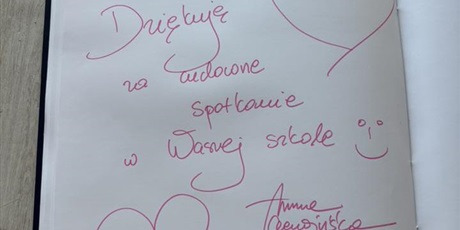 Dziękuję
za cudowne
spotkanie
w Waszej szkole
Anna